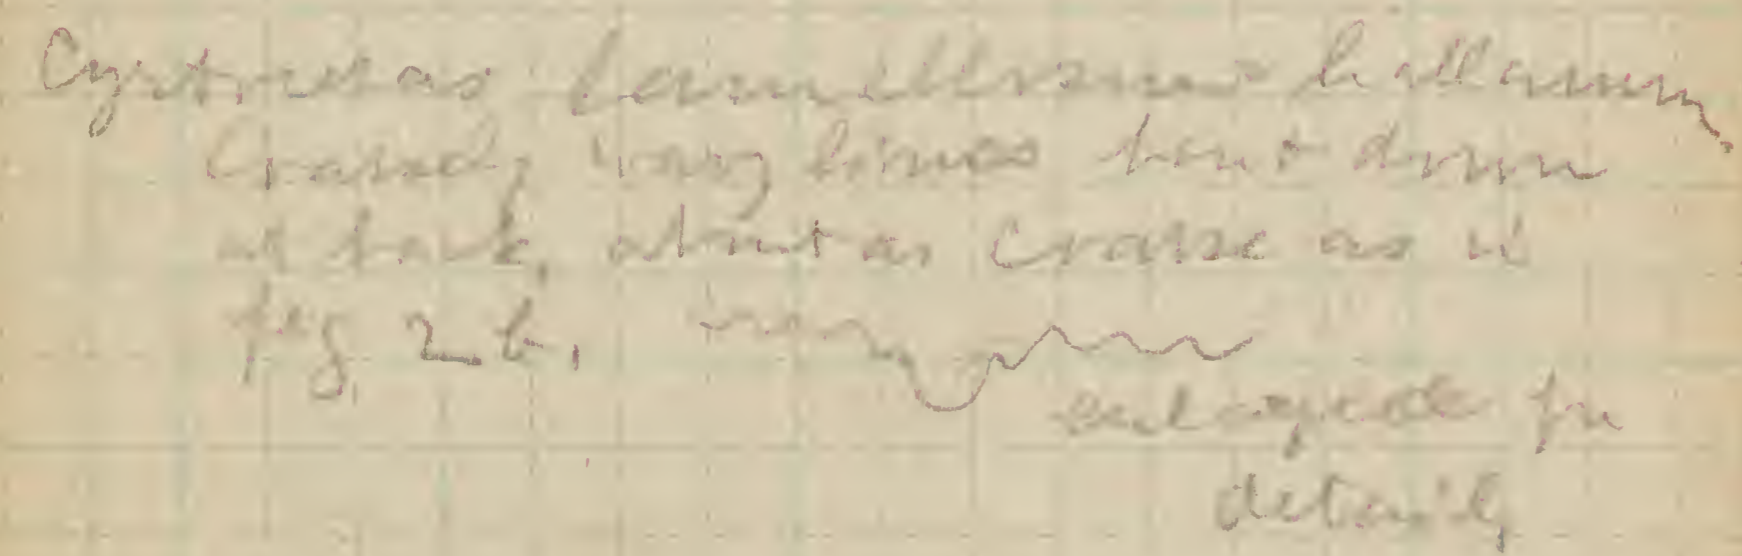 Cyrtoceras lamellosum hallanum
Coarsely wavy lines bent down
at back, about as coarse as in
fig 2b,
enlarged for
details,